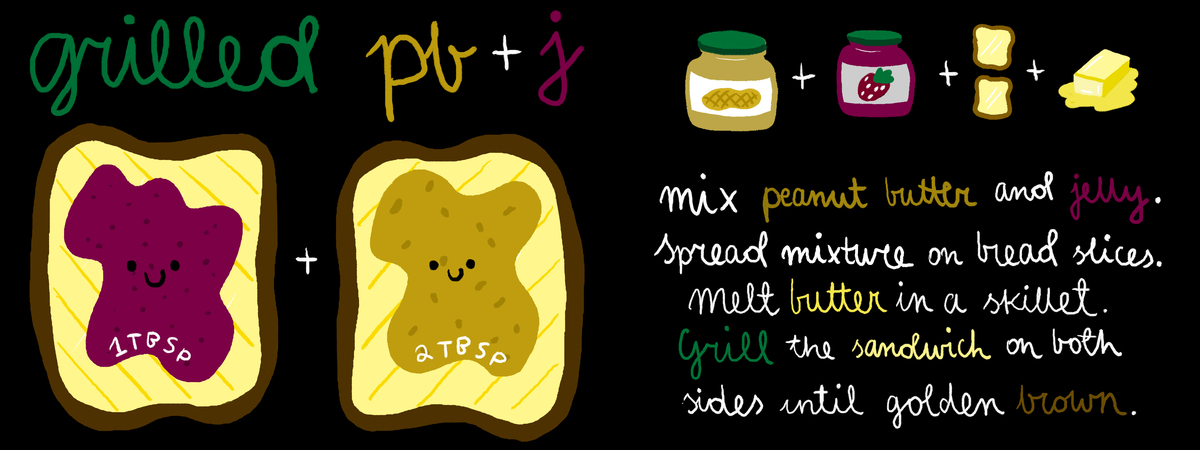 grilled pb + j
1 TBSP
+
2 TBSP
+ + +
mix peanut butter and jelly.
Spread mixture on bread slices.
Melt butter in a skillet.
Grill the sandwich on both
sides until golden brown.